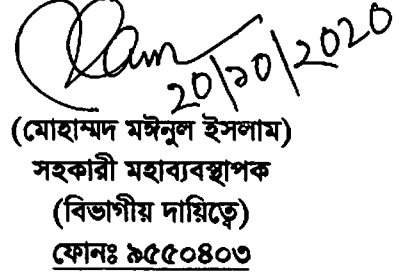 20/10/2020
(মোহাম্মদ মঈনুল ইসলাম)
সহকারী মহাব্যবস্থাপক
(বিভাগীয় দায়িত্বে)
ফোনঃ ৯৫৫০৪০৩